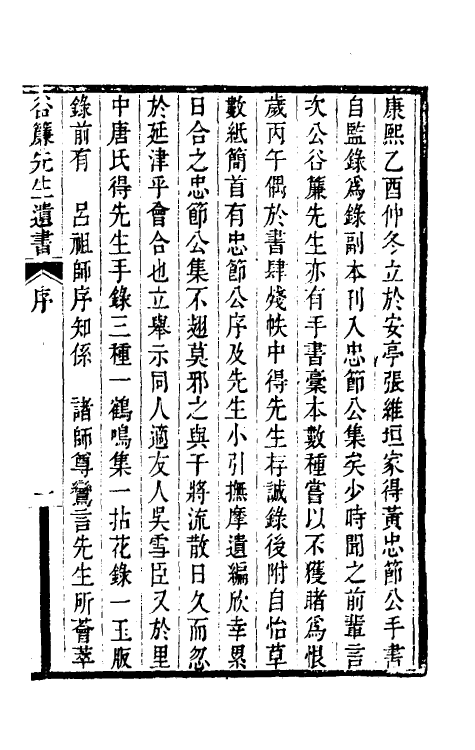 康熙乙酉仲冬立於安亭張維垣家得黃忠節公手書
自監錄爲錄副本刊入忠節公集矣少時聞之前輩言
次公谷簾先生亦有手書藁本數種嘗以不獲睹爲恨
歲丙午偶於書肆殘帙中得先生存誠錄後附自怡草
數紙簡首有忠節公序及先生小引撫摩遺編欣幸累
日合之忠節公集不翅莫邪之與干將流散日久而忽
於延津乎會合也立舉示同人適友人吳雪臣又於里
中唐氏得先生手錄三種一鶴鳴集一拈花錄一玉版
錄前有　呂祖師序知係　諸師尊鸞言先生所薈萃
谷簾先生遺書　序　一